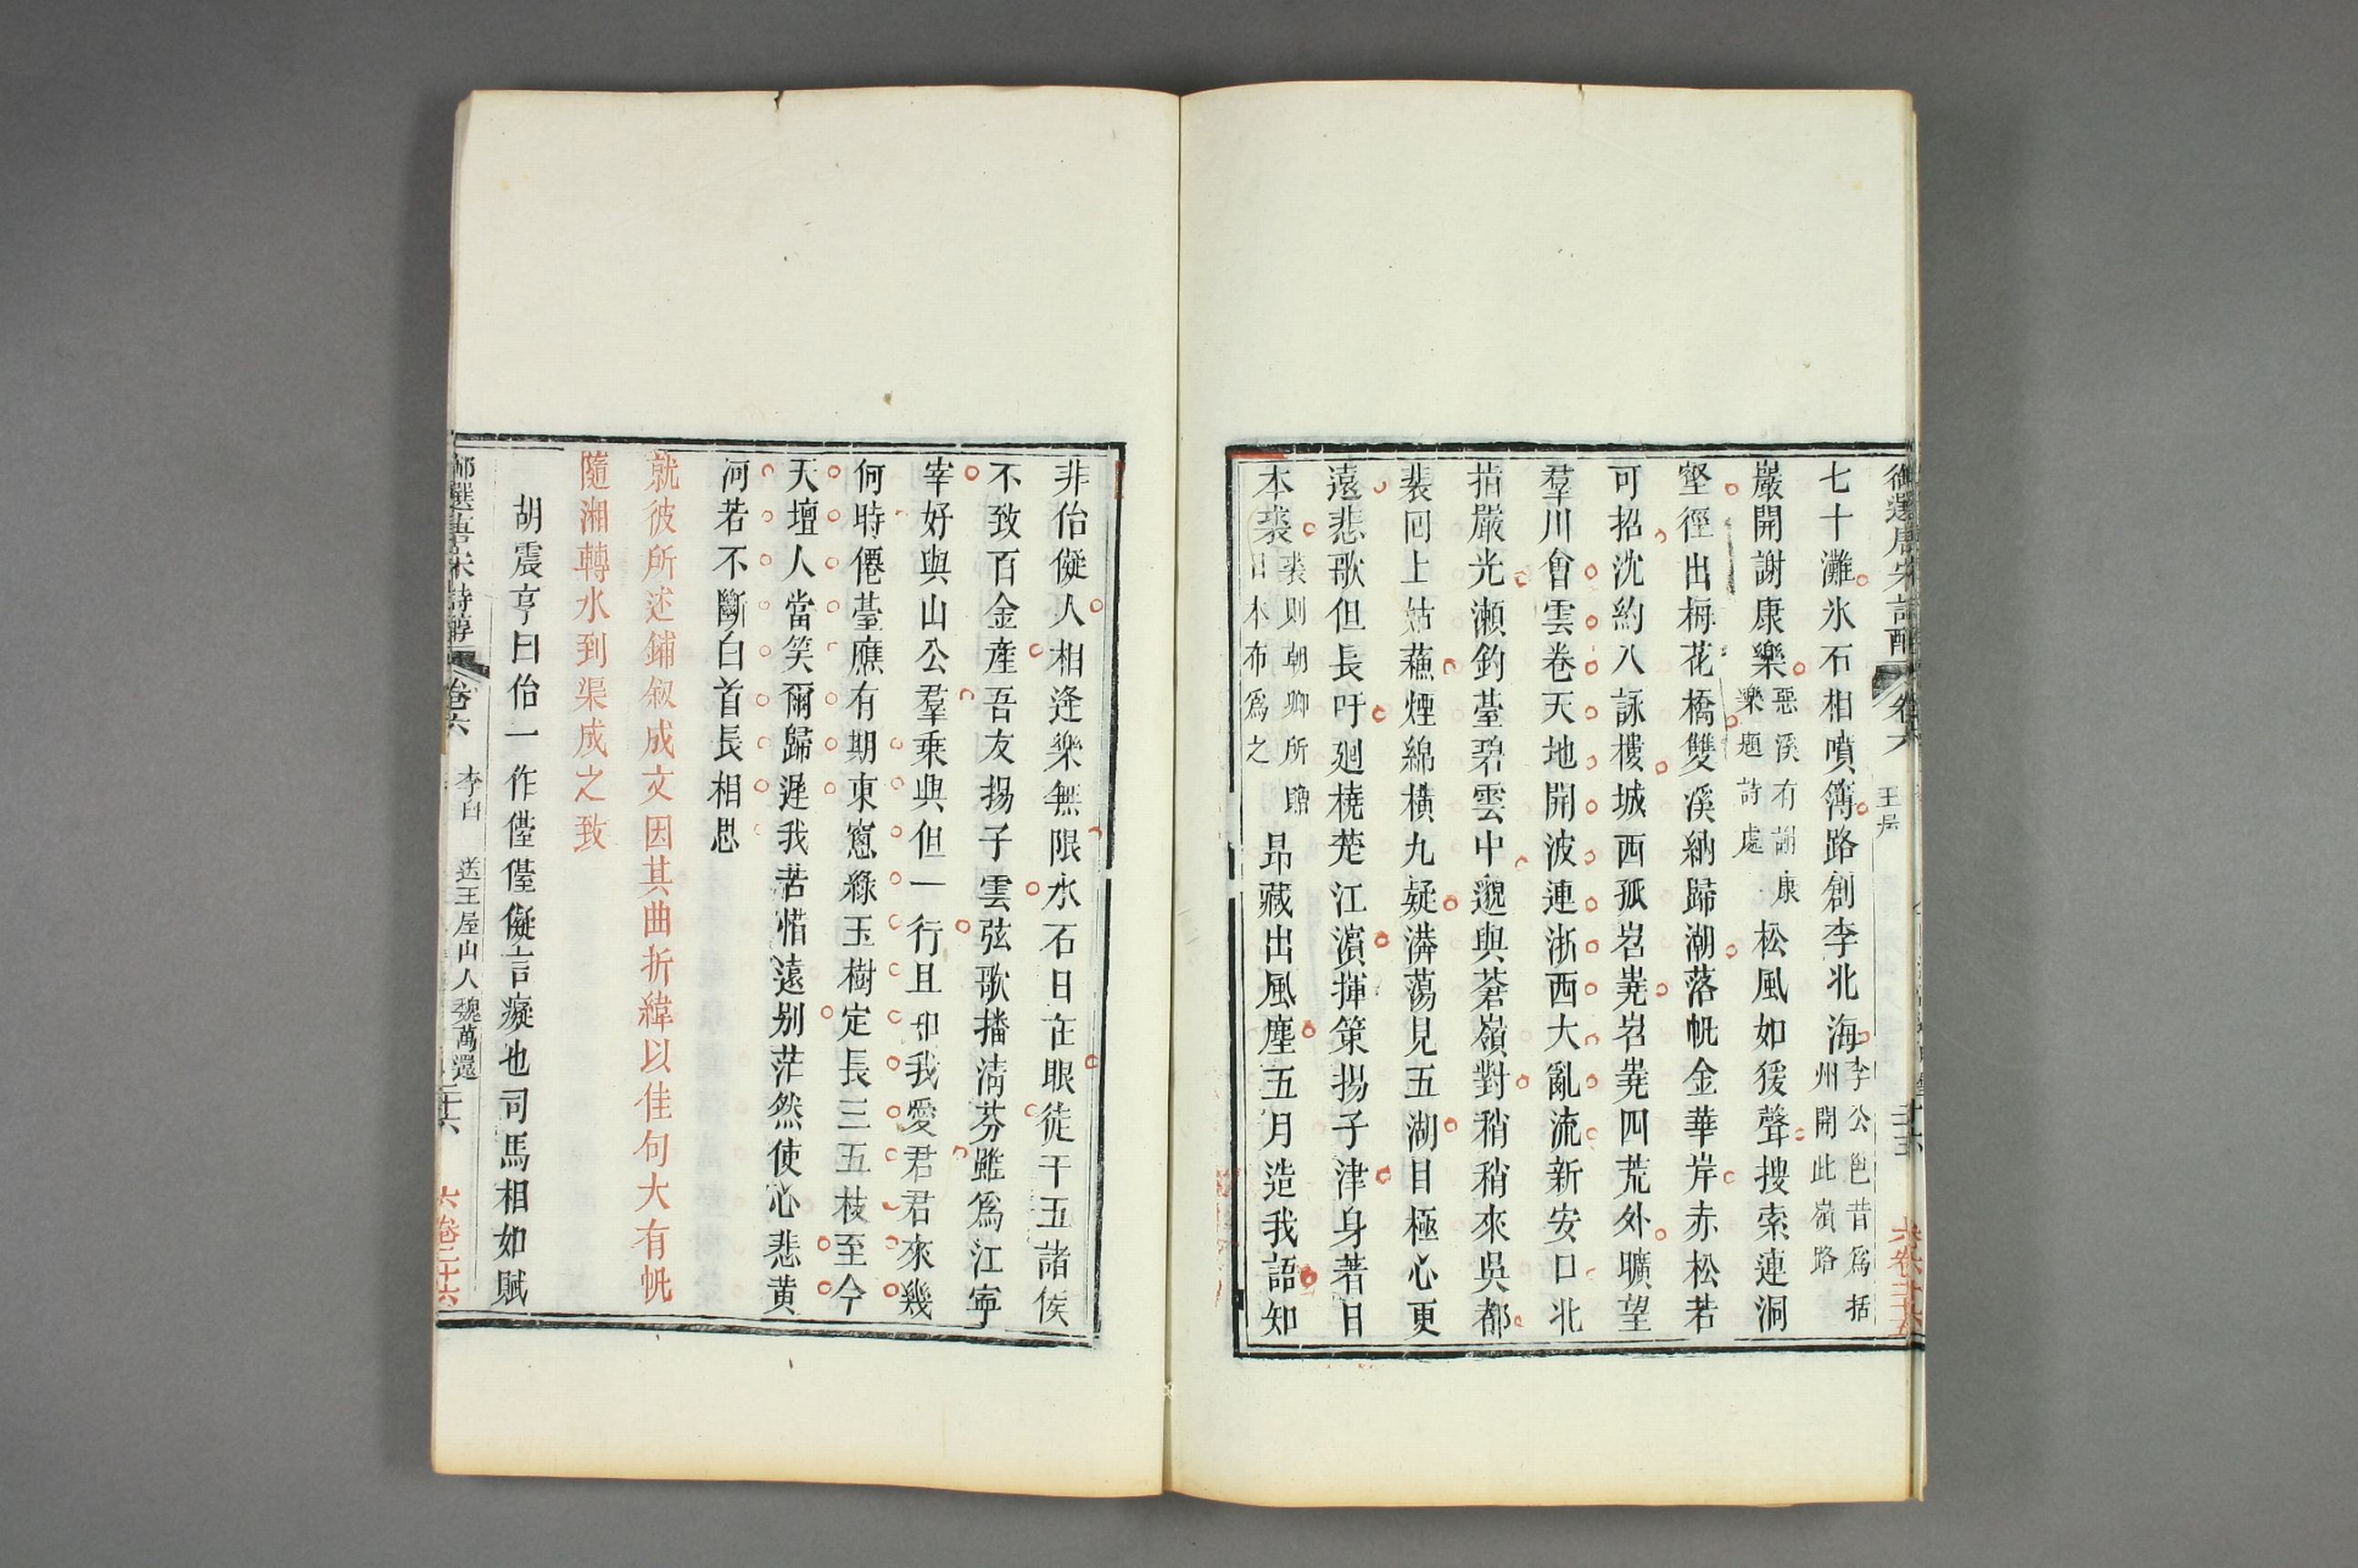 御選唐宋詩醇 卷六
七十灘水石相噴薄路創李北海李公邕昔爲括州開此嶺路
巖開謝康樂惡溪有謝康樂題詩處松風如猨聲搜索連洞
壑徑出梅花橋雙溪納歸潮落帆金華岸赤松若
可招沈約八詠樓城西孤岧嶤岧嶤四荒外曠望
羣川會雲卷天地開波連浙西大亂流新安口北
指嚴光瀨釣臺碧雲中邈與蒼嶺對稍稍來吳都
裴回上姑蘇煙綿橫九疑漭蕩見五湖目極心更
遠悲歌但長吁廻橈楚江濵揮策揚子津身著日
本裘裘則朝卿所贈日本布爲之昂藏出風塵五月造我語知
非佁儗人相逢樂無限水石日在眼徒干五諸侯
不致百金產吾友揚子雲弦歌播清芬雖爲江寧
宰好與山公羣乗興但一行且知我愛君君來幾
何時僊臺應有期東窻綠玉樹定長三五枝至今
天壇人當笑爾歸遲我苦惜遠別茫然使心悲黄
河若不斷白首長相思
就彼所述鋪叙成文因其曲折緯以佳句大有帆
隨湘轉水到渠成之致
胡震亨曰佁一作儓儓儗言癡也司馬相如賦
御選唐宋詩醇 卷六 李白 送王屋山人魏萬還 二十六 六卷二十六